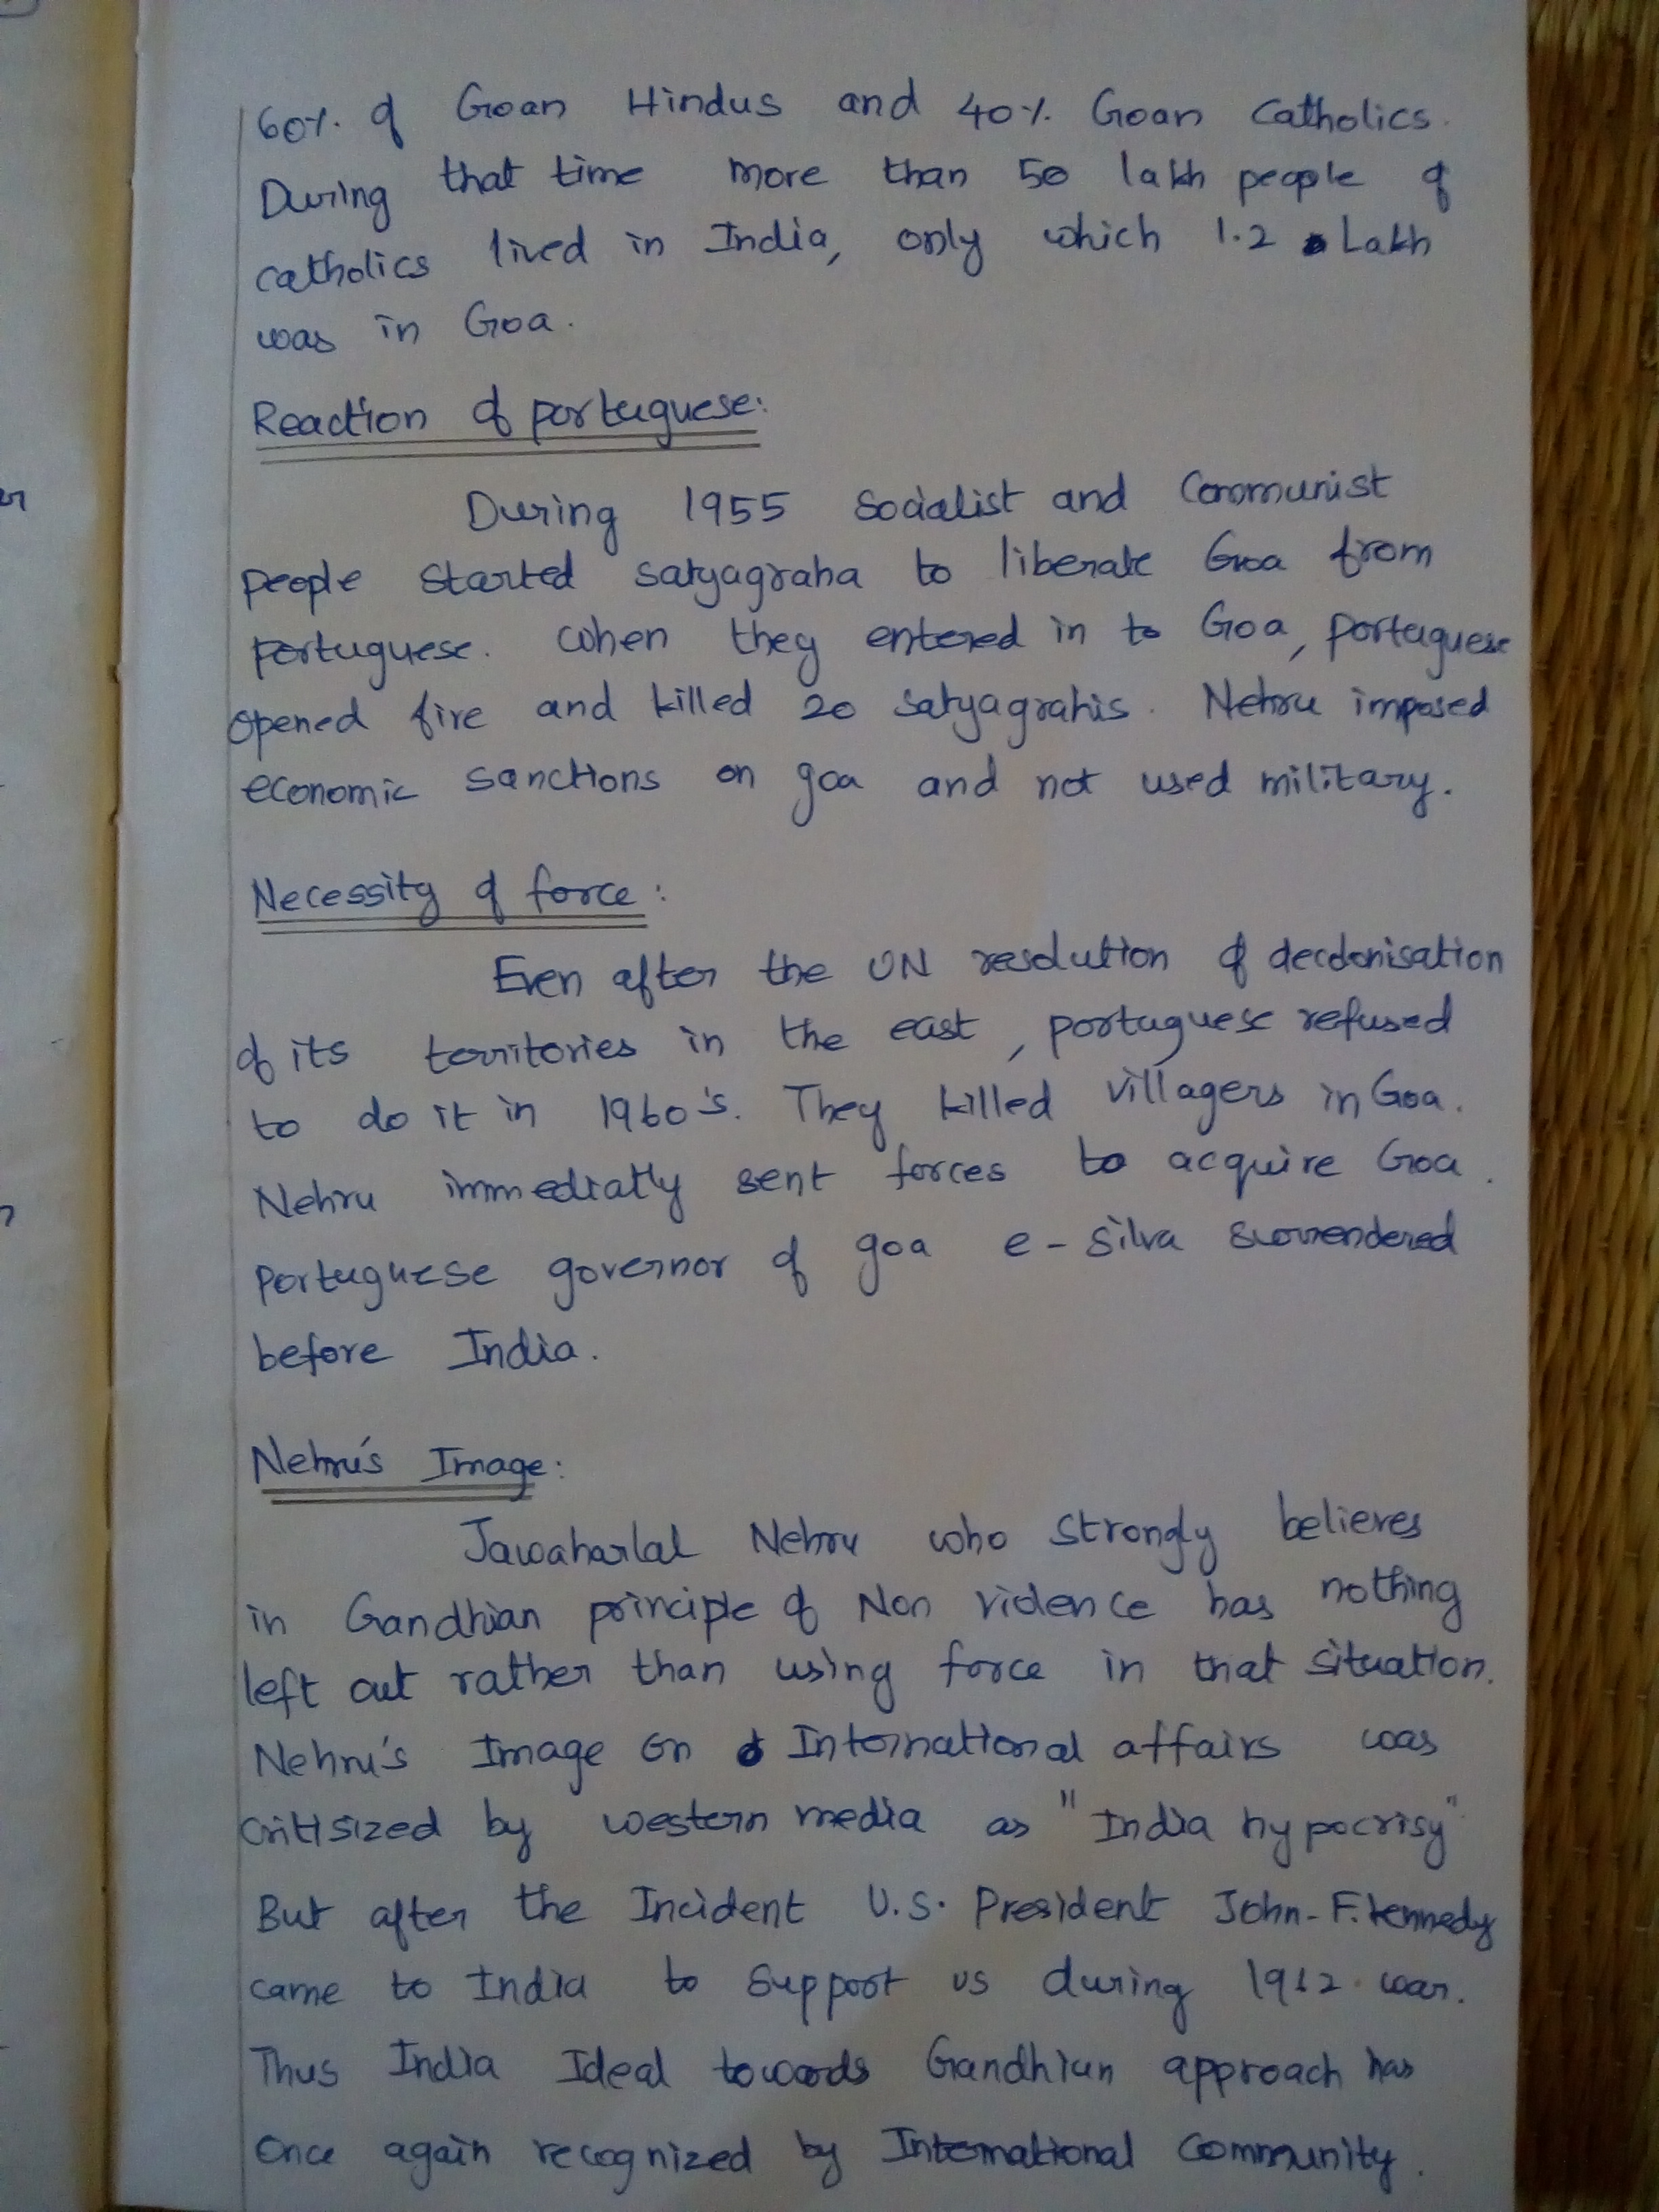 60%. of Goan Hindus and 40%. Goan Catholics.
During that time more than 50 lakh people of
catholics lived in India, only which 1.2 Lakh
was in Goa.
Reaction of portuguese:
During 1955 Socialist and Communist
people started satyagraha to liberate Goa from
portuguese. When they entered in to Goa, portuguese
opened fire and killed 20 satyagrahis. Nehru imposed
economic sanctions on goa and not used military.
Necessity of force:
Even after the UN resolution of decolonisation
of its territories in the east, portuguese refused
to do it in 1960's. They killed villagers in Goa.
Nehru immediatly sent forces to acquire Goa.
Portuguese governor of goa e-silva surrendered
before India.
Nehru's Image:
Jawaharlal Nehru who strongly believes
in Gandhian principle of Non violence has nothing
left out rather than using force in that situation.
Nehru's Image on International affairs was
critisized by western media as "India hypocrisy"
But after the Incident U.S. President John-F.kennedy
came to India to support us during 1962 war.
Thus India Ideal towards Gandhian approach has
once again recognized by International Community.